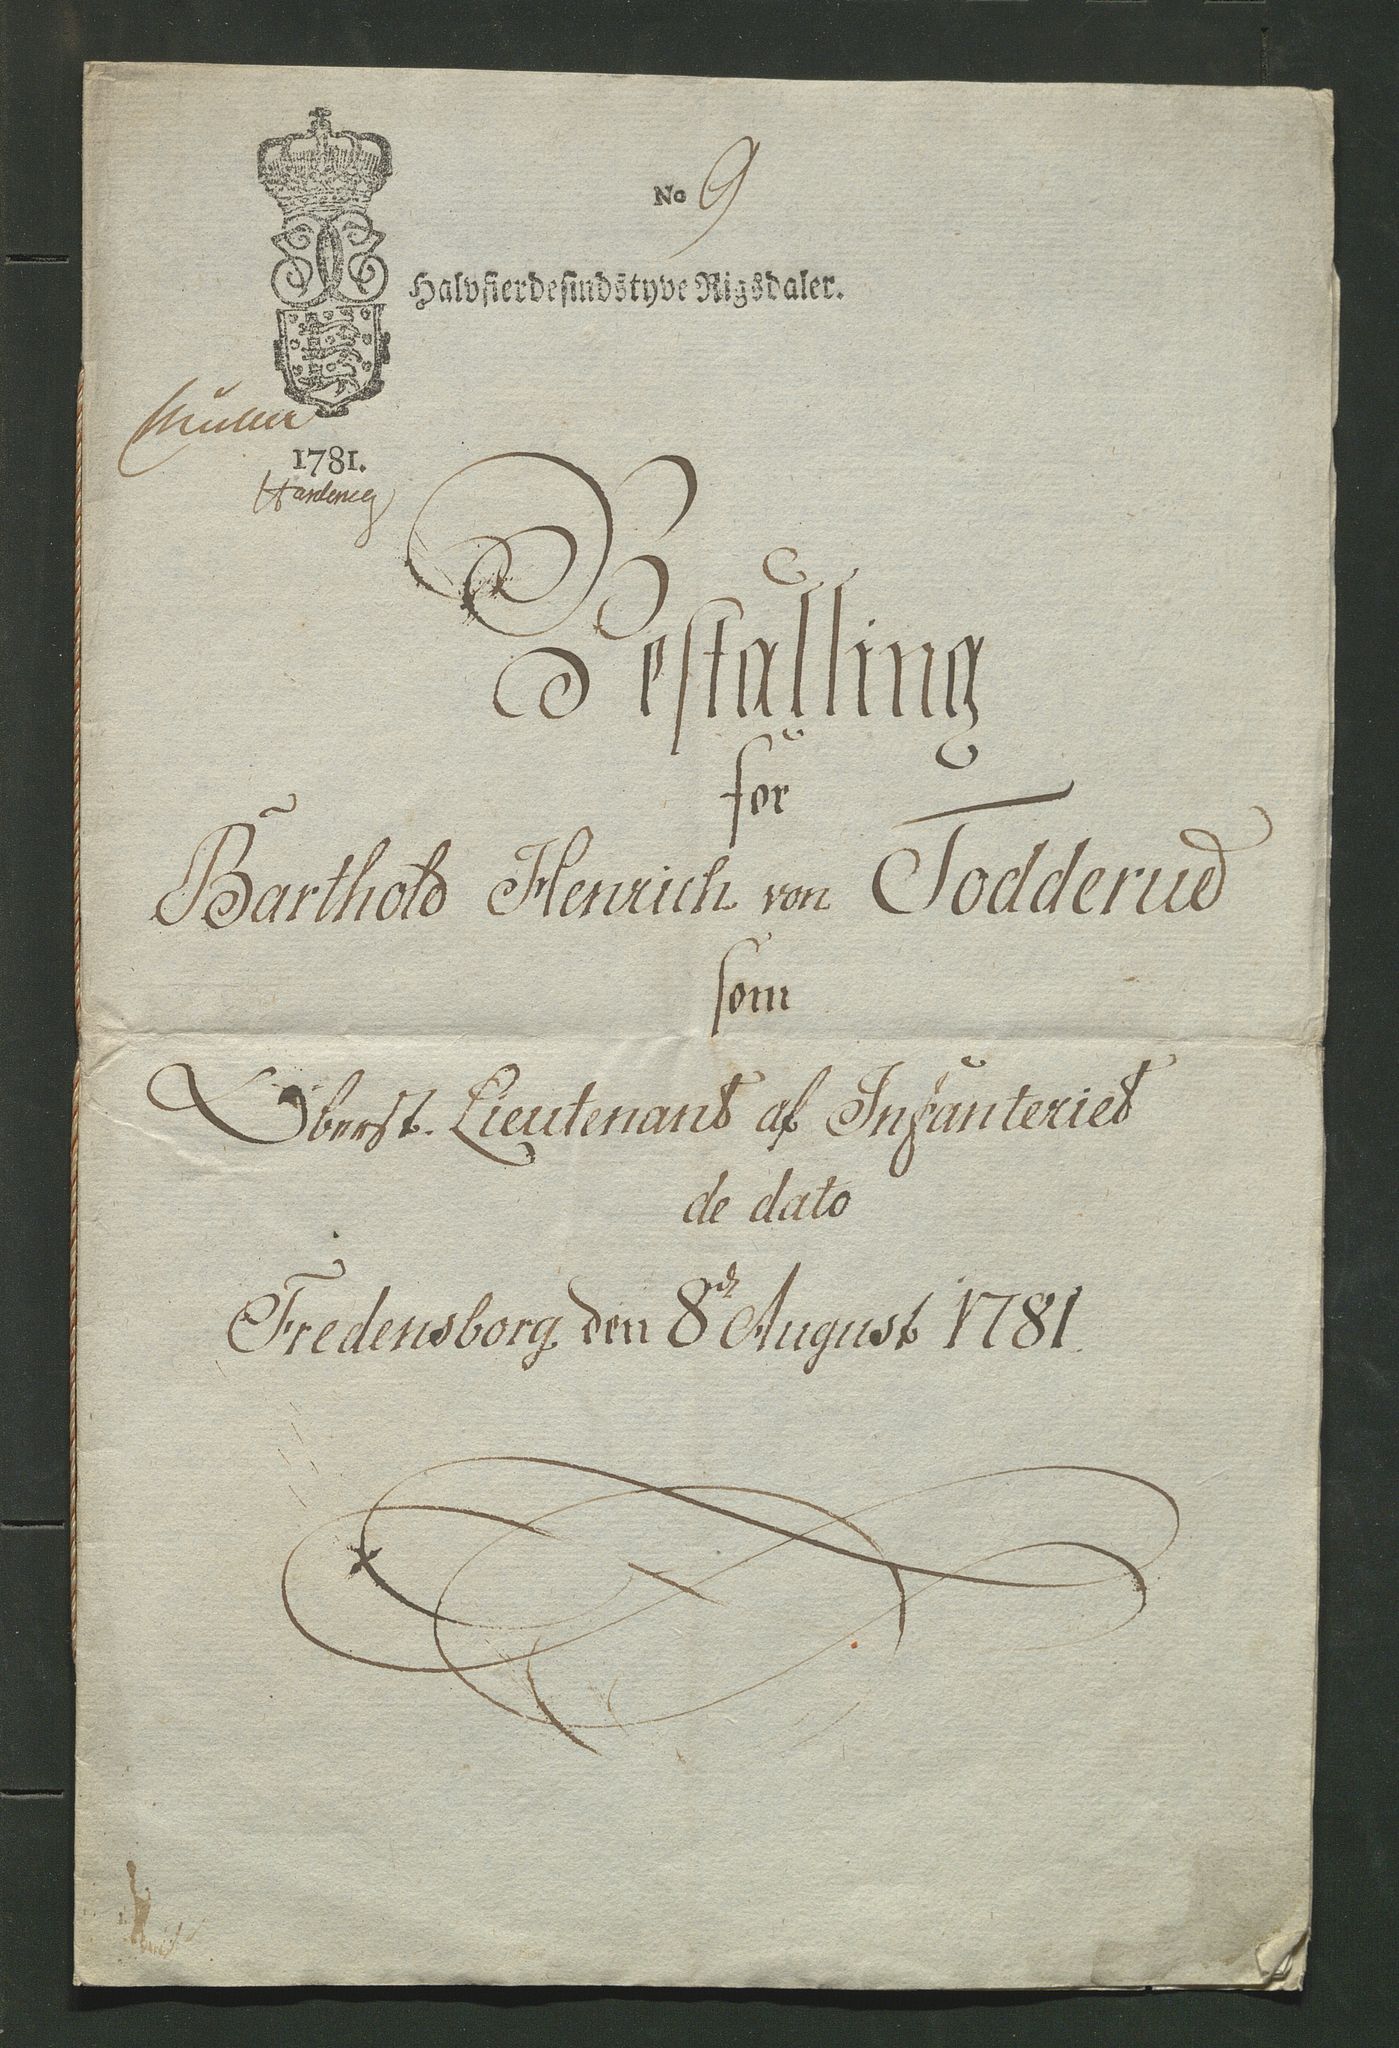 No 9
Halvfierdesindstyve Rigsdaler.
1781.
Bestalling
for
Barthold Henrich von Todderud
som
Oberst-Lieutenant af Infanteriet
de dato
Fredensborg den 8de August 1781.